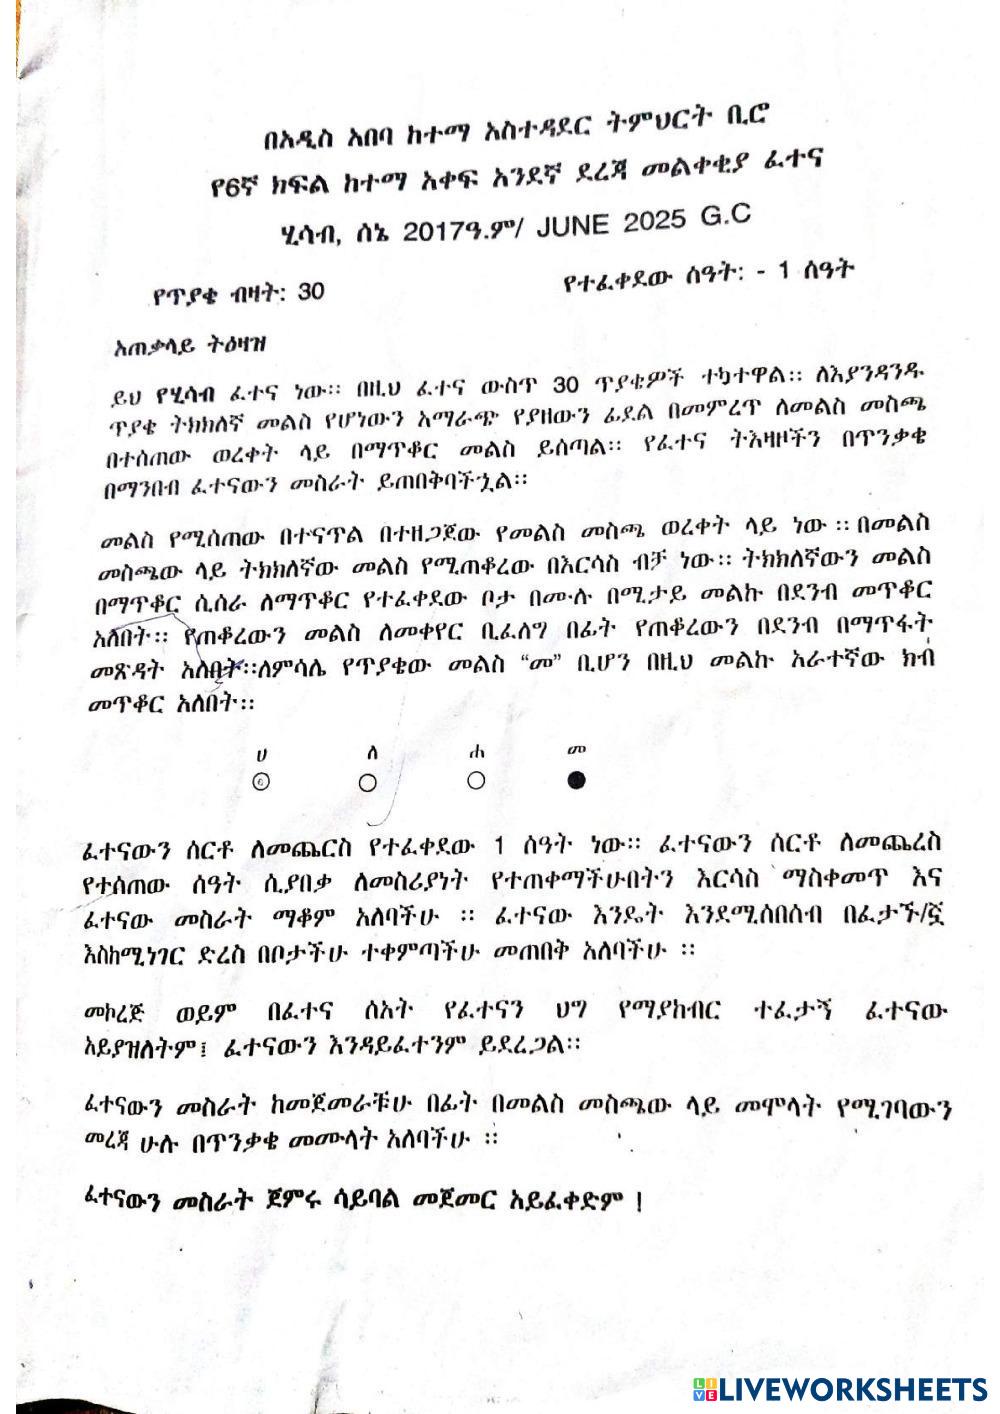 በአዲስ አበባ ከተማ አስተዳደር ትምህርት ቢሮ
የ6ኛ ክፍል ከተማ አቀፍ አንደኛ ደረጃ መልቀቂያ ፈተና
ሂሳብ, ሰኔ 2017ዓ.ም/ JUNE 2025 G.C
የጥያቄ ብዛት: 30
የተፈቀደው ሰዓት: - 1 ሰዓት
አጠቃላይ ትዕዛዝ
ይህ የሂሳብ ፈተና ነው። በዚህ ፈተና ውስጥ 30 ጥያቄዎች ተካተዋል። ለእያንዳንዱ
ጥያቄ ትክክለኛ መልስ የሆነውን አማራጭ የያዘውን ፊደል በመምረጥ ለመልስ መስጫ
በተሰጠው ወረቀት ላይ በማጥቆር መልስ ይሰጣል። የፈተና ትእዛዞችን በጥንቃቄ
በማንበብ ፈተናውን መስራት ይጠበቅባችኋል።
መልስ የሚሰጠው በተናጥል በተዘጋጀው የመልስ መስጫ ወረቀት ላይ ነው ። በመልስ
መስጫው ላይ ትክክለኛው መልስ የሚጠቆረው በእርሳስ ብቻ ነው። ትክክለኛውን መልስ
በማጥቆር ሲሰራ ለማጥቆር የተፈቀደው ቦታ በሙሉ በሚታይ መልኩ በደንብ መጥቆር
አለበት። የጠቆረውን መልስ ለመቀየር ቢፈለግ በፊት የጠቆረውን በደንብ በማጥፋት
መጽዳት አለበት።ለምሳሌ የጥያቄው መልስ “መ” ቢሆን በዚህ መልኩ አራተኛው ክብ
መጥቆር አለበት።
ሀ ለ ሐ መ
ፈተናውን ሰርቶ ለመጨርስ የተፈቀደው 1 ሰዓት ነው። ፈተናውን ሰርቶ ለመጨረስ
የተሰጠው ሰዓት ሲያበቃ ለመስሪያነት የተጠቀማችሁበትን እርሳስ ማስቀመጥ እና
ፈተናው መስራት ማቆም አለባችሁ ። ፈተናው እንዴት እንደሚሰበሰብ በፈታኙ/ኟ
እስከሚነገር ድረስ በቦታችሁ ተቀምጣችሁ መጠበቅ አለባችሁ ።
መኮረጅ ወይም በፈተና ሰአት የፈተናን ህግ የማያከብር ተፈታኝ ፈተናው
አይያዝለትም፤ ፈተናውን እንዳይፈተንም ይደረጋል።
ፈተናውን መስራት ከመጀመራቹሁ በፊት በመልስ መስጫው ላይ መሞላት የሚገባውን
መረጃ ሁሉ በጥንቃቄ መሙላት አለባችሁ ።
ፈተናውን መስራት ጀምሩ ሳይባል መጀመር አይፈቀድም !
LIVEWORKSHEETS